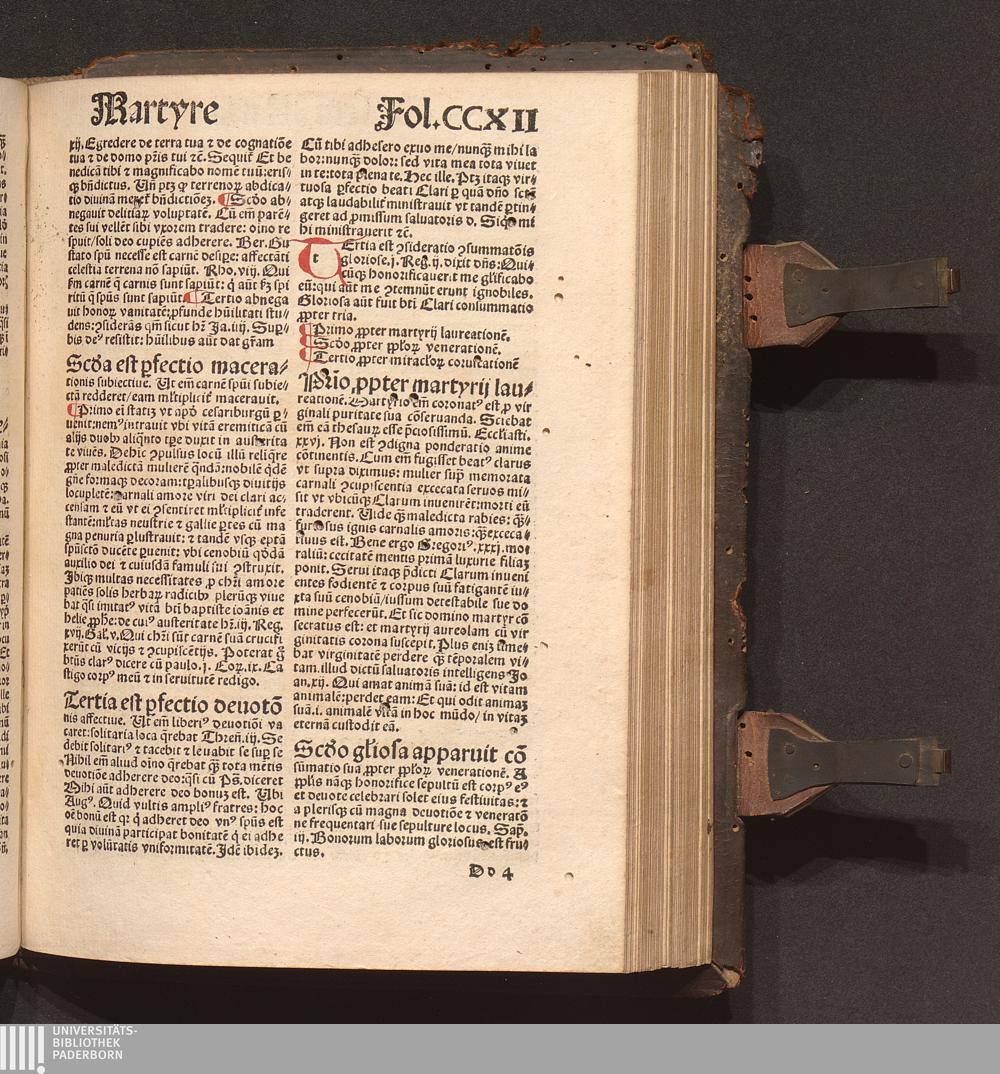 Martyre
Fol.CCXII
xij. Egredere de terra tua ⁊ de cognatiõe
tua ⁊ de domo pr̃is tui ⁊c̃. Sequit̃ Et be
nedicã tibi ⁊ magnificabo nomẽ tuũ: eris⸗
q̃ bñdictus. Uñ ptꝫ ꝙ terrenoꝝ abdica⸗
tio diuinã meret̃ bñdictiõeꝫ. Scd̃o ab⸗
negauit delitiaꝝ voluptatẽ. Cũ em̃ parẽ⸗
tes sui vellẽt sibi vxorem tradere: oĩno re
spuit/soli deo cupiẽs adherere. Ber. Gu
stato spũ necesse est carnẽ desipe: affectãti
celestia terrena nõ sapiũt. Rho. viij. Qui
ẽm carnẽ q̃ carnis sunt sapiũt: q̃ aũt ẞm spi
ritũ q̃ spũs sunt sapiũt. Tertio abnega
uit honoꝝ vanitatẽ: ꝓfunde hũilitati stu⸗
dens: ꝯsiderãs qm̃ sicut hr̃ Ja. iiij. Suꝑ⸗
bis deꝰ resistit: hũilibus aũt dat gr̃am
Scd̃a est ꝑfectio macera⸗
tionis subiectiue. Ut em̃ carnẽ spũi subie⸗
ctã redderet/eam ml̃tiplicit̃ macerauit.
Primo ei statiꝫ vt apd̃ cesariburgũ ꝑ⸗
uẽit: nemꝰ intrauit vbi vitã eremiticã cũ
alijs duobꝰ aliqñto tꝑe duxit in austerita
te viuẽs. Dehĩc ꝯpulsus locũ illũ reliq̃re
ꝓpter maledictã mulierẽ q̃ndã: nobilẽ q̃dẽ
gñe formaqꝫ decoram: tꝑalibusqꝫ diuitijs
locupletẽ: carnali amore viri dei clari ac⸗
censam ⁊ eũ vt ei ꝯsentiret ml̃tiplicit̃ infe
stantẽ: ml̃tas neustrie ⁊ gallie ꝑtes cũ ma
gna penuria ꝑlustrauit: ⁊ tandẽ vsqꝫ eptã
spũsctõ ducẽte ꝑuenit: vbi cenobiũ q̃ddã
auxilio dei ⁊ cuiusdã famuli sui ꝯstruxit.
Ibiqꝫ multas necessitates ꝓ chr̃i amore
patiẽs solis herbaꝝ radicibꝰ plerũqꝫ viue
bat q̃si imitatꝰ vitã bt̃i baptiste ioãnis et
helie ꝓphe: de cuiꝰ austeritate hr̃. iij. Reg.
xvij. Gal̃. v. Qui chr̃i sũt carnẽ suã crucifi
xerũt cũ vicijs ⁊ ꝯcupiscẽtijs. Poterat q̃
bt̃us clarꝰ dicere cũ paulo. j. Coꝝ. ix. Ca
stigo corpꝰ meũ ⁊ in seruitutẽ redigo.
Tertia est ꝑfectio deuotõ
nis affectiue. Ut em̃ liberiꝰ deuotiõi va
caret: solitaria loca q̃rebat Thren̄. iij. Se
debit solitariꝰ ⁊ tacebit ⁊ leuabit se suꝑ se
Nihil em̃ aliud oĩno q̃rebat q̃ꝫ tota mẽtis
deuotiõe adherere deo: q̃si cũ Ps̃. diceret
Mihi aũt adherere deo bonuꝫ est. Ubi
Augꝰ. Quid vultis ampliꝰ fratres: hoc
oẽ bonũ est qꝛ q̃ adheret deo vnꝰ spũs est
quia diuinã participat bonitatẽ q̃ ei adhe
ret ꝑ volũtatis vniformitatẽ. Idẽ ibideꝫ.
Cũ tibi adhesero exuo me/nunqꝫ̃ mihi la
bor: nunqꝫ̃ dolor: sed vita mea tota viuet
in te: tota plena te. Hec ille. Ptꝫ itaqꝫ vir⸗
tuosa ꝑfectio beati Clari ꝑ quã dño sctẽ
atqꝫ laudabilit̃ ministrauit vt tandẽ ꝑtin⸗
geret ad ꝓmissum saluatoris d. Siq̃s mi
hi ministrauerit ⁊c̃.
Tertia est ꝯsideratio ꝯsummatõis
gloriose. j. Reg. ij. dixit dñs: Qui⸗
cũqꝫ honorificauerit me gl̃ificabo
eũ: qui aũt me ꝯtemnũt erunt ignobiles.
Gloriosa aũt fuit bt̃i Clari consummatio
ꝓpter tria.
Primo ꝓpter martyrij laureationẽ.
Scd̃o ꝓpter ppl̃oꝝ venerationẽ.
Tertio ꝓpter miracl̃oꝝ coruscationẽ
Pr̃io ꝓpter martyrij lau⸗
reationẽ. Martyrio em̃ coronatꝰ est ꝓ vir
ginali puritate sua cõseruanda. Sciebat
em̃ eã thesauꝝ esse p̃ciosissimũ. Eccl̃iasti.
xxvj. Non est ꝯdigna ponderatio anime
cõtinentis. Cum em̃ fugisset beatꝰ clarus
vt supra diximus: mulier supꝰ memorata
carnali ꝯcupiscentia excecata seruos mi⸗
sit vt vbicũqꝫ Clarum inuenirẽt: morti eũ
traderent. Uide q̃ꝫ maledicta rabies: q̃ꝫ⸗
furiosus ignis carnalis amoris: q̃ꝫ exceca⸗
tiuus est. Bene ergo Gregoriꝰ. xxxj. mo⸗
raliũ: cecitatẽ mentis primã luxurie filiaꝫ
ponit. Serui itaqꝫ p̃dicti Clarum inueni
entes fodientẽ ⁊ corpus suũ fatigantẽ iu⸗
xta suũ cenobiũ/iussum detestabile sue do
mine perfecerũt. Et sic domino martyr cõ
secratus est: et martyrij aureolam cũ vir
ginitatis corona suscepit. Plus eniꝫ time⸗
bat virginitatẽ perdere q̃ꝫ tẽporalem vi⸗
tam. illud dictũ saluatoris intelligens Jo
an. xij. Qui amat animã suã: id est vitam
animalẽ: perdet eam: Et qui odit animaꝫ
suã. i. animalẽ vitã in hoc mũdo/in vitaꝫ
eternã custodit eã.
Scd̃o gl̃iosa apparuit cõ
sũmatio sua ꝓpter ppl̃oꝝ venerationẽ. A
ppl̃is nãqꝫ honorifice sepultũ est corpꝰ eꝰ
et deuote celebrari solet eius festiuitas: ⁊
a plerisqꝫ cũ magna deuotiõe ⁊ veneratõ
ne frequentari sue sepulture locus. Sap̃.
iij. Bonorum laborum gloriosus est fru⸗
ctus.
Dd 4
UNIVERSITÄTS-
BIBLIOTHEK
PADERBORN